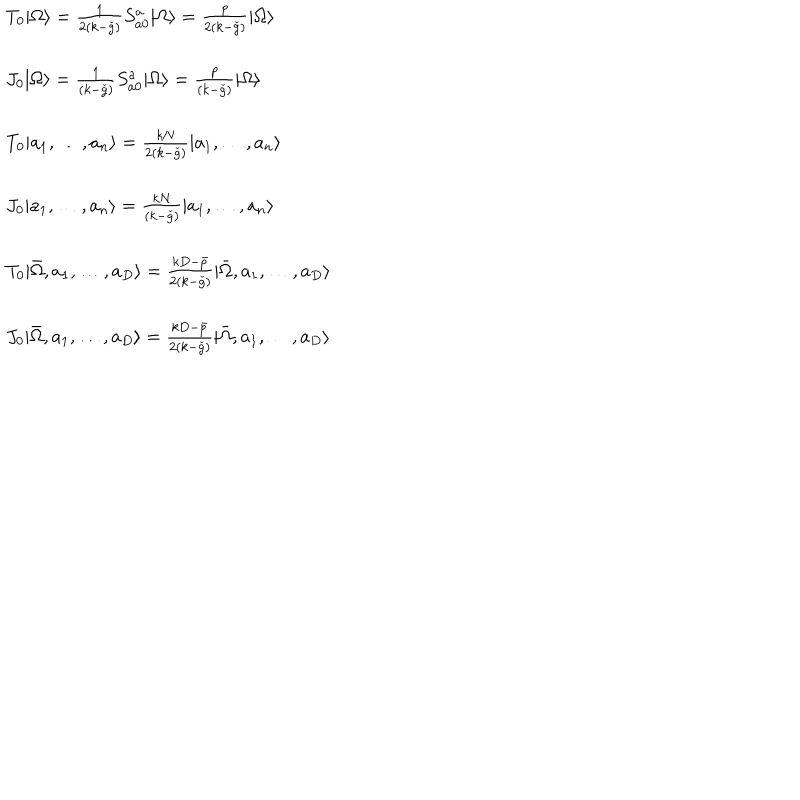 T₀|Ω⟩ = \frac{1}{2(k-\check{g})} S^a_{a0}|Ω⟩ = \frac{p}{2(k-\check{g})}|Ω⟩
J₀|Ω⟩ = \frac{1}{(k-\check{g})} S^a_{a0}|Ω⟩ = \frac{p}{(k-\check{g})}|Ω⟩
T₀|a₁, …, aₙ⟩ = \frac{kN}{2(k-\check{g})}|a₁, …, aₙ⟩
J₀|a₁, …, aₙ⟩ = \frac{kN}{(k-\check{g})}|a₁, …, aₙ⟩
T₀|\bar{Ω}, a₁, …, a_D⟩ = \frac{kD-\bar{p}}{2(k-\check{g})}|\bar{Ω}, a₁, …, a_D⟩
J₀|\bar{Ω}, a₁, …, a_D⟩ = \frac{kD-\bar{p}}{2(k-\check{g})}|\bar{Ω}, a₁, …, a_D⟩